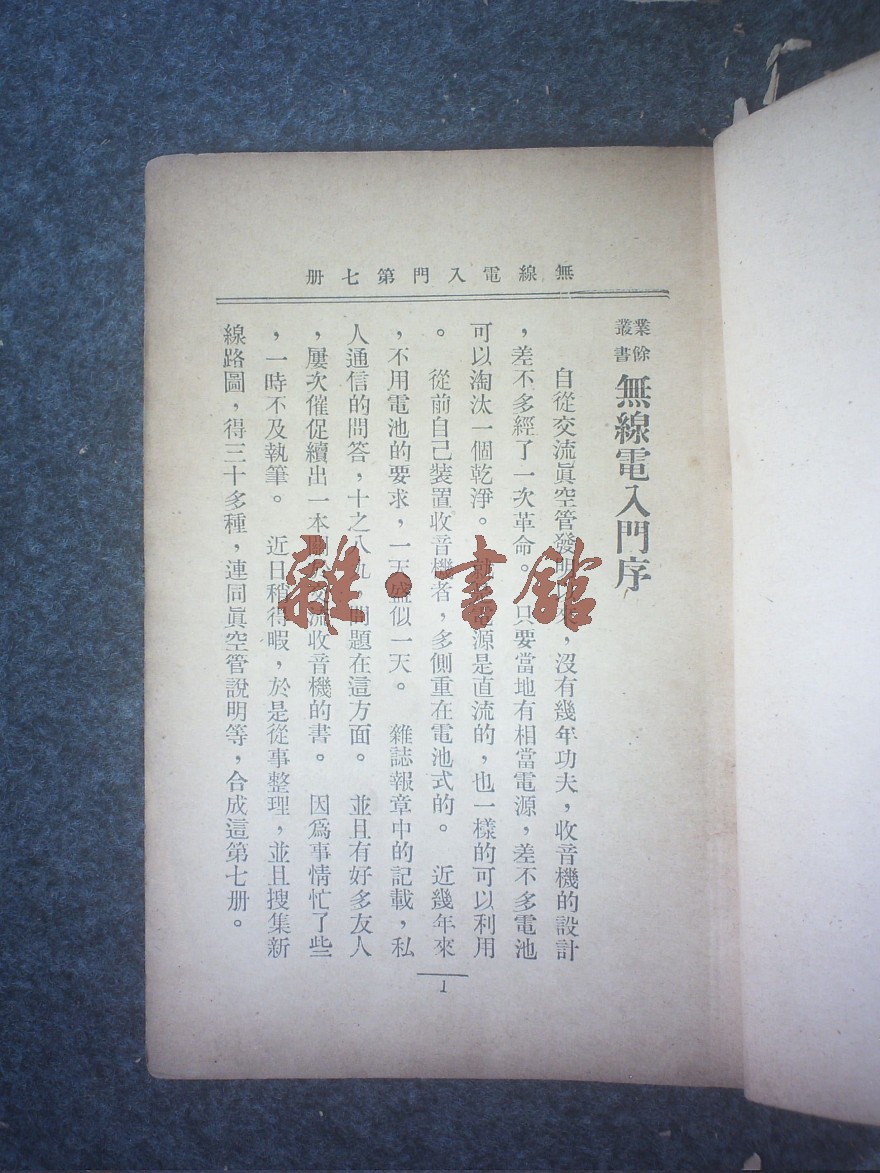 無線電入門第七册
業餘叢書
無線電入門序
自從交流眞空管發明,沒有幾年功夫,收音機的設計
,差不多經了一次革命。只要當地有相當電源,差不多電池
可以淘汰一個乾淨。電源是直流的,也一樣的可以利用
。從前自己装置收音機者,多側重在電池式的。近幾年來
,不用電池的要求,一天盛似一天。雜誌報章中的記載,私
人通信的問答,十之八九,問題在這方面。並且有好多友人
,屢次催促續出一本交流收音機的書。因爲事情忙了些
,一時不及執筆。近日稍得暇,於是從事整理,並且搜集新
線路圖,得三十多種,連同眞空管說明等,合成這第七册。
1
雜·書館